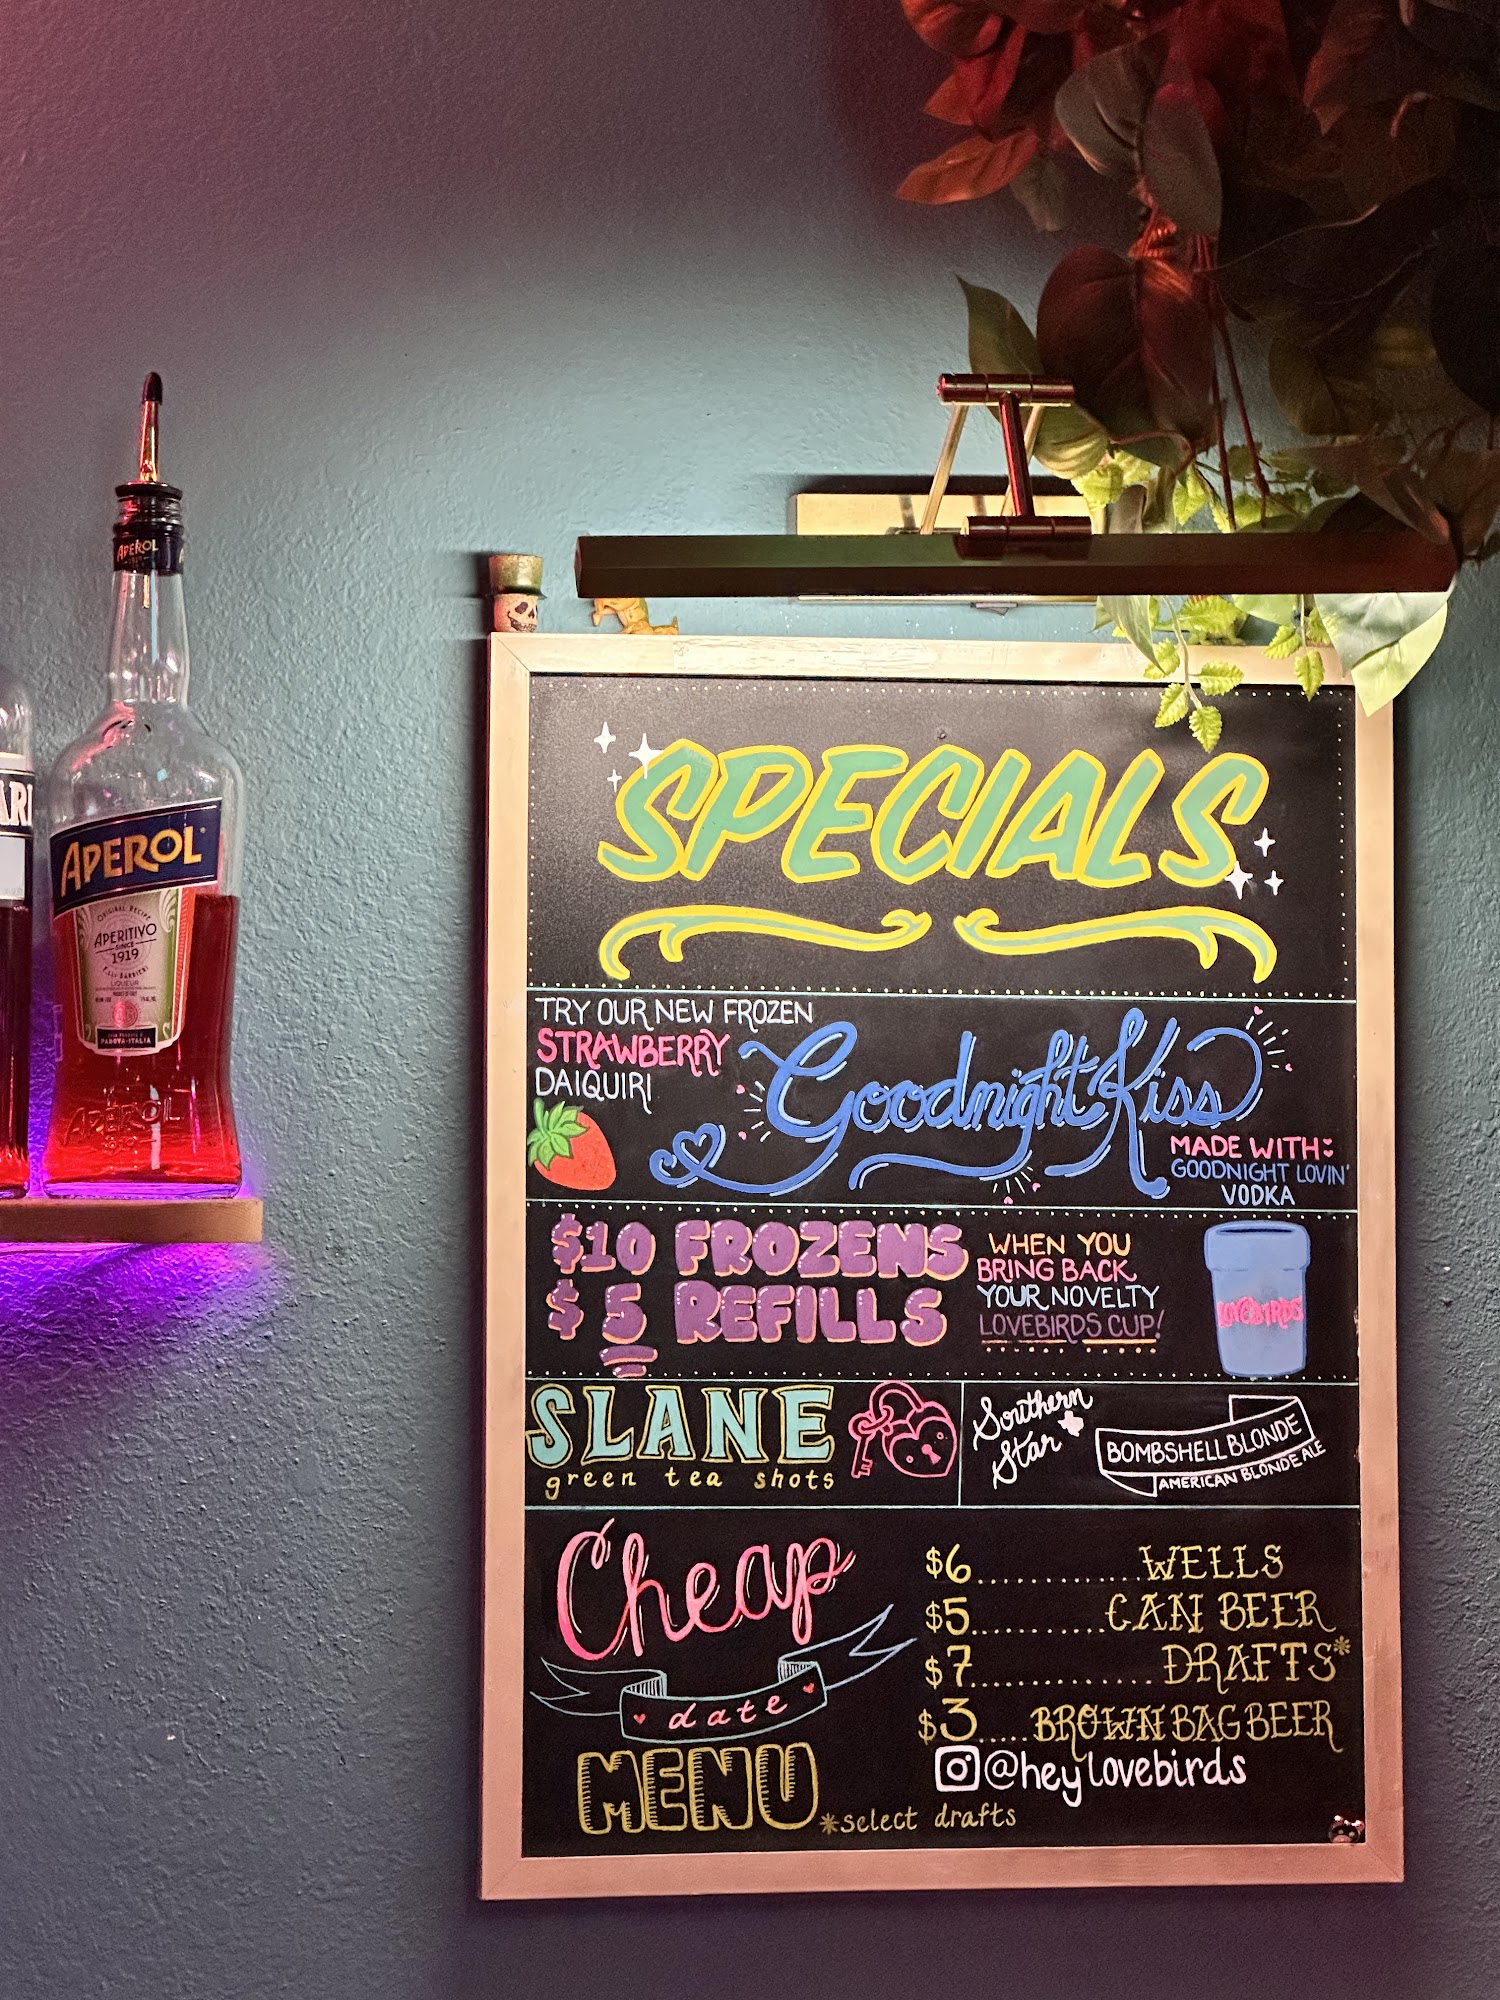 APEROL
APEROL
ORIGINAL RECIPE
APERITIVO
SINCE
1919
F.LLI BARBIERI
LIQUEUR
PADOVA·ITALIA
APEROL
SPECIALS
TRY OUR NEW FROZEN
STRAWBERRY
DAIQUIRI
Goodnight Kiss
MADE WITH:
GOODNIGHT LOVIN'
VODKA
$10 FROZENS
$5 REFILLS
WHEN YOU
BRING BACK
YOUR NOVELTY
LOVEBIRDS CUP!
LOVEBIRDS
SLANE
green tea shots
Southern
Star
BOMBSHELL BLONDE
AMERICAN BLONDE ALE
Cheap
date
MENU
$6............WELLS
$5...........CAN BEER
$7..............DRAFTS*
$3.....BROWN BAG BEER
@heylovebirds
*select drafts